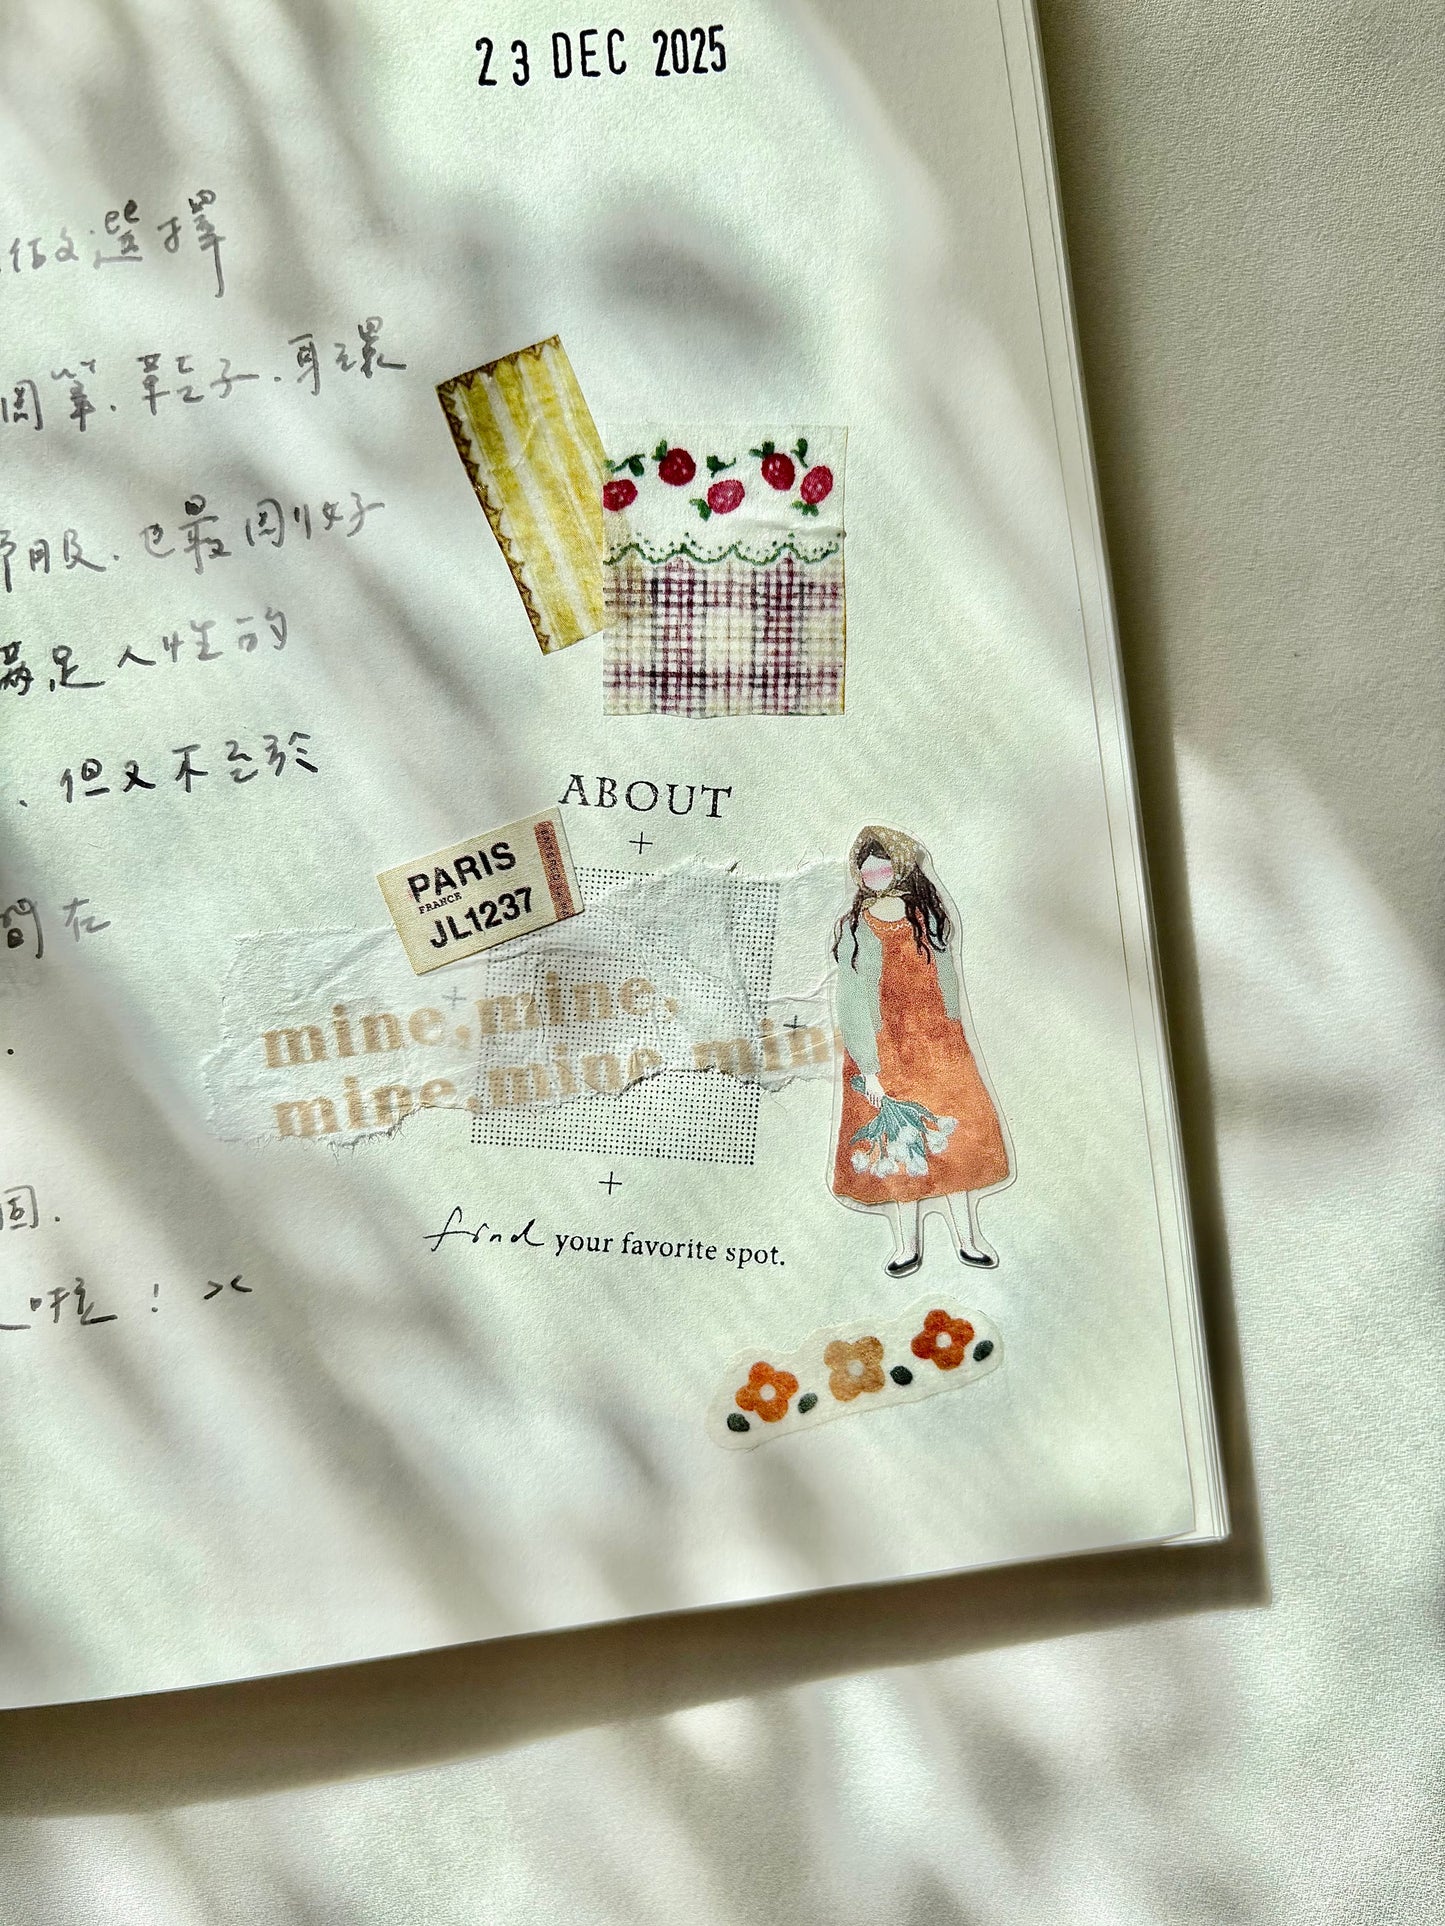 23 DEC 2025
做選擇
筆.鞋子.耳環
服.也最剛好
滿足人性的
、但又不至於
間在
ABOUT
+
PARIS
FRANCE
JL1237
mine,mine,
mine,mine,mine
+
find your favorite spot.
固.
啦! ><